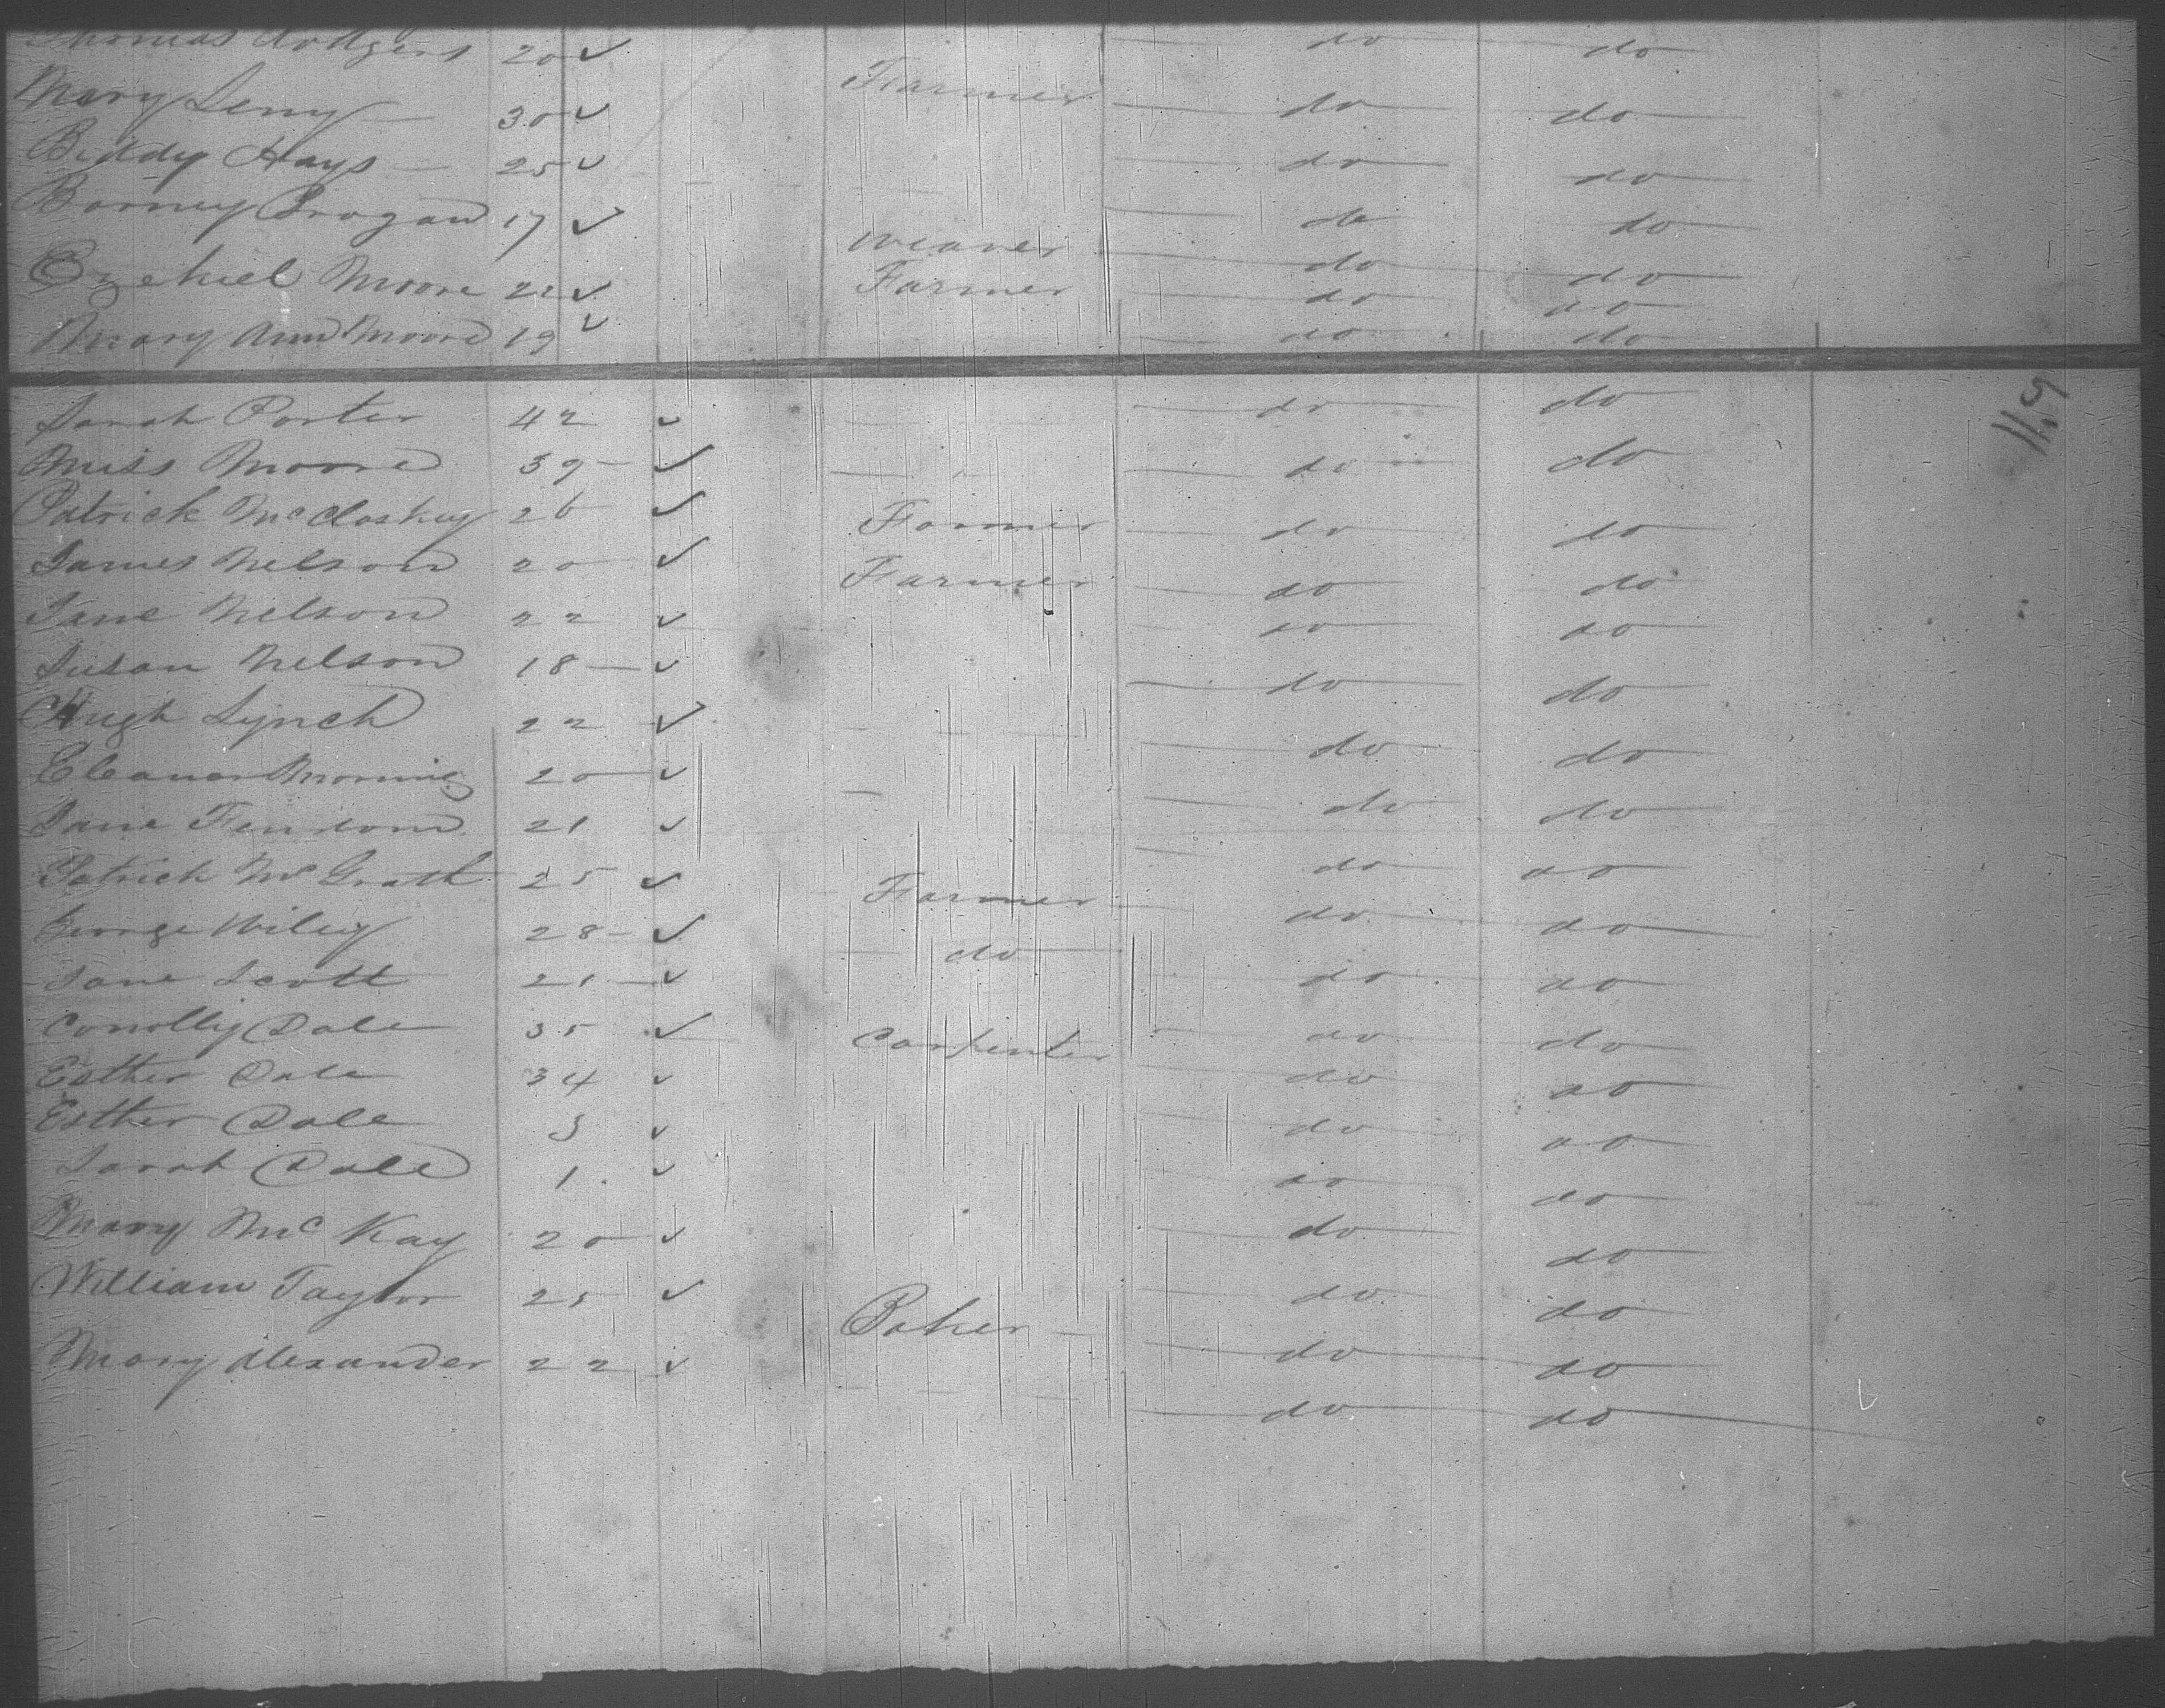 Thomas Rodgers 20 do do
Mary Leny 30 Farmer do do
Biddy Hays 25 do do
Barney Grogan 17 do do
weaver do do
Ezekiel Moore 22 Farmer do do
Mary Ann Moore 19 do do
Sarah Porter 42 do do
Miss Moore 39 do do
Patrick McCloskey 26 Farmer do do
James Nelson 20 Farmer do do
Jane Nelson 22 do do
Susan Nelson 18 do do
Hugh Lynch 22 do do
Eleanor 20 do do
Jane 21 do do
Patrick McGrath 25 Farmer do do
George Wiley 28 do do do
Jane Scott 21 do do
Conolly Dale 35 Carpenter do do
Esther Dale 34 do do
Esther Dale 3 do do
Sarah Dale 1 do do
Mary McKay 20 do do
William Taylor 25 Baker do do
Mary Alexander 22 do do
do do